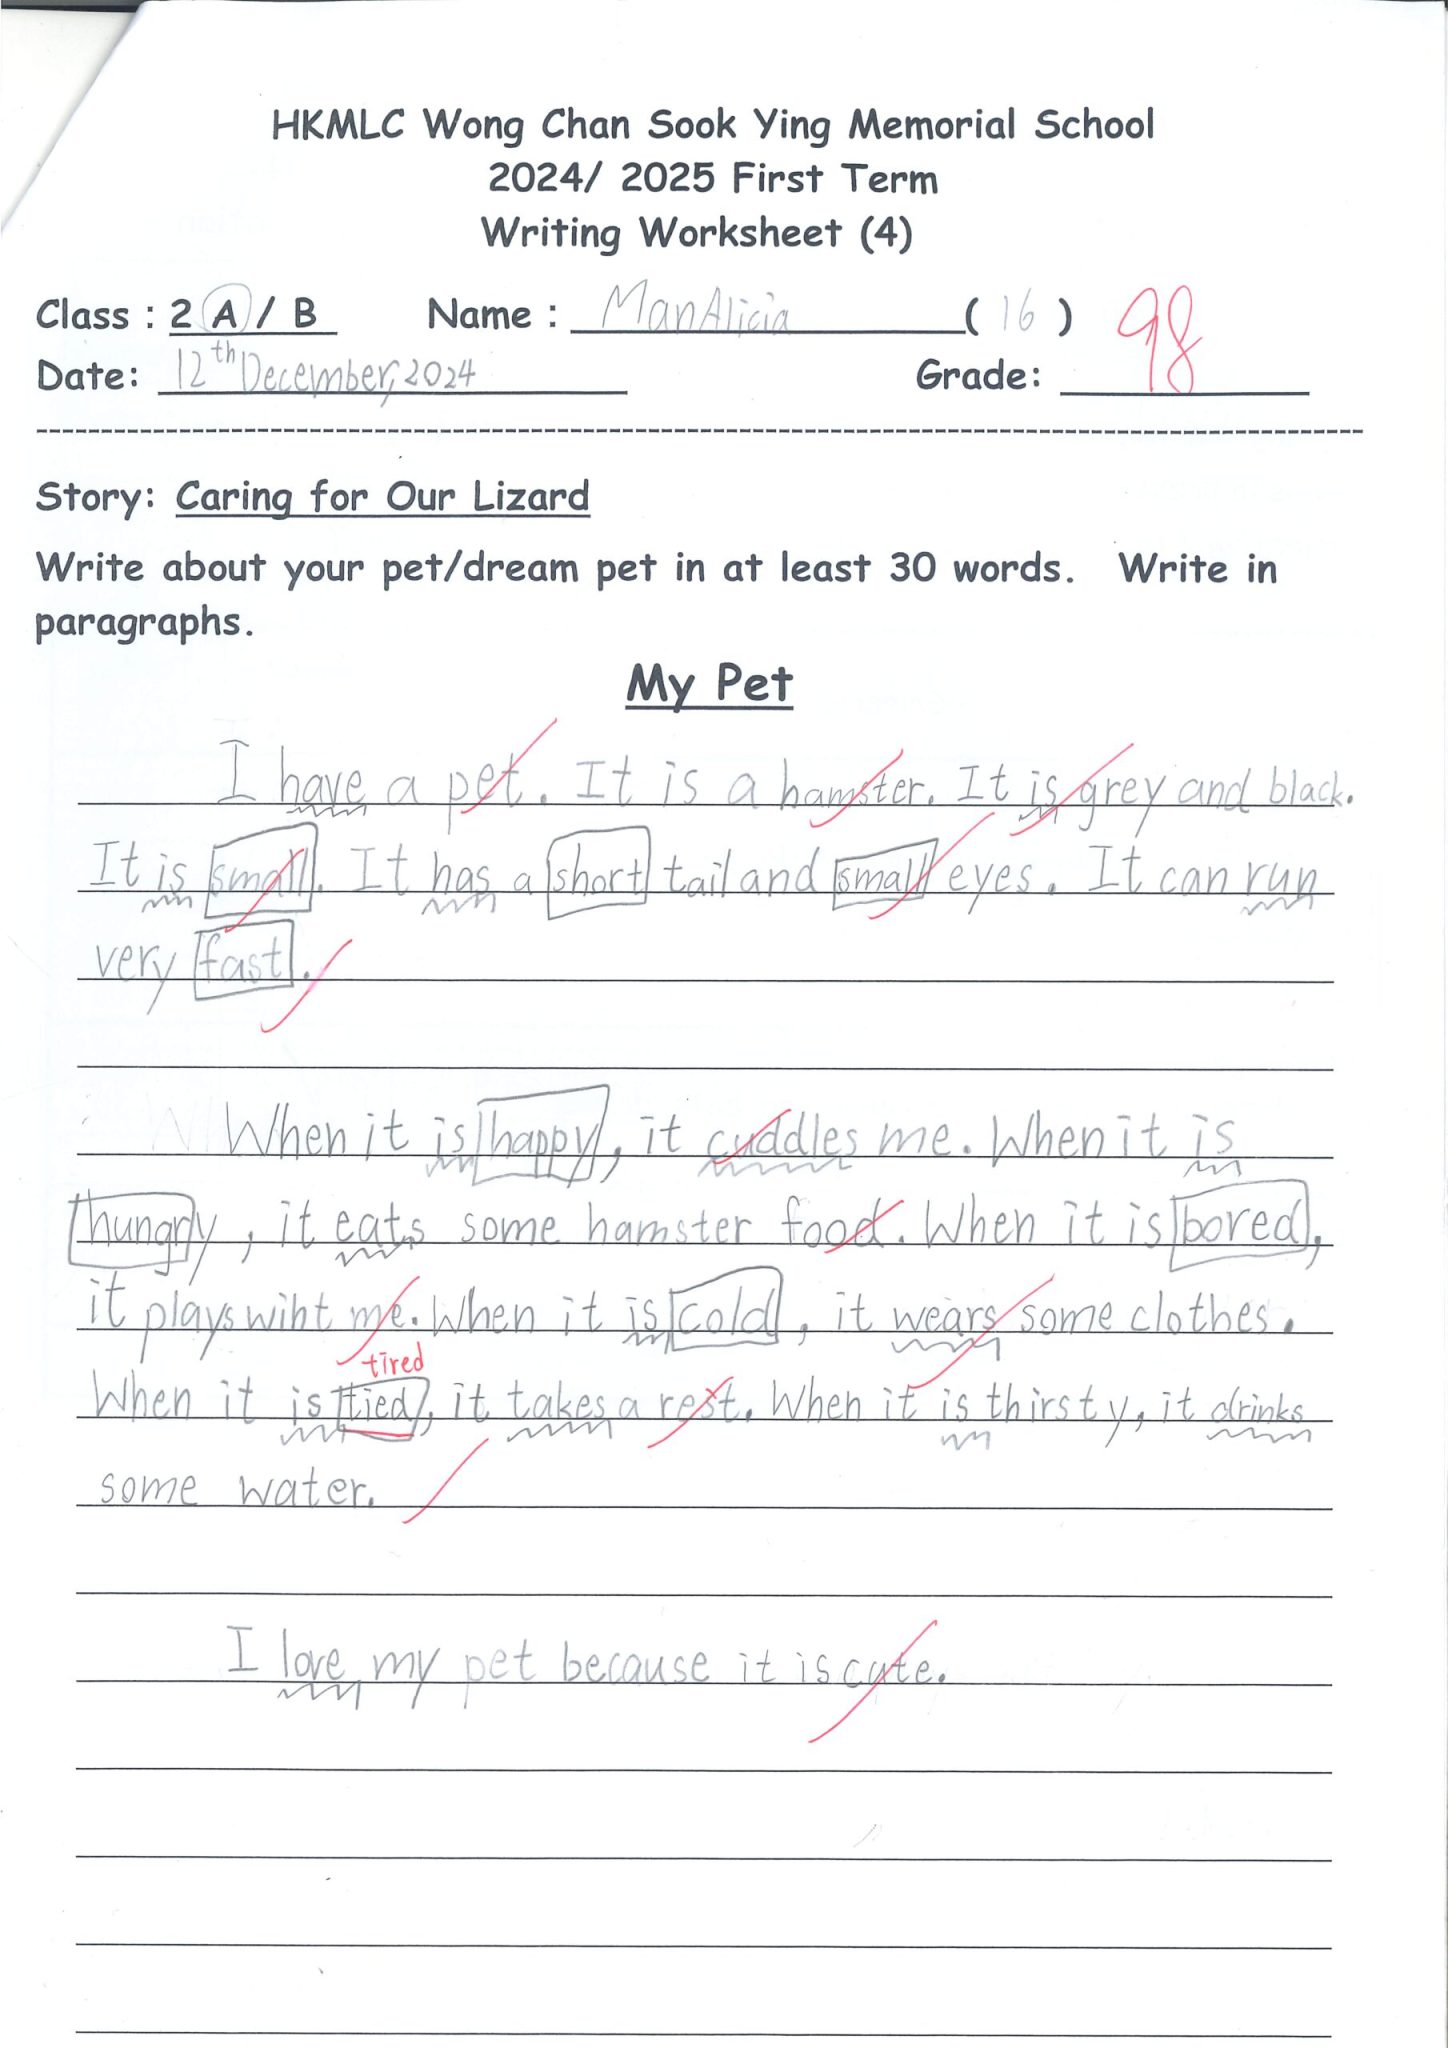 HKMLC Wong Chan Sook Ying Memorial School
2024/ 2025 First Term
Writing Worksheet (4)
Class : 2 A / B Name : Man Alicia ( 16 ) 98
Date: 12th December, 2024 Grade:
Story: Caring for Our Lizard
Write about your pet/dream pet in at least 30 words. Write in
paragraphs.
My Pet
I have a pet. It is a hamster. It is grey and black.
It is small. It has a short tail and small eyes. It can run
very fast.
When it is happy, it cuddles me. When it is
hungry, it eats some hamster food. When it is bored,
it plays wiht me. When it is cold, it wears some clothes.
tired
When it is tied, it takes a rest. When it is thirsty, it drinks
some water.
I love my pet because it is cute.